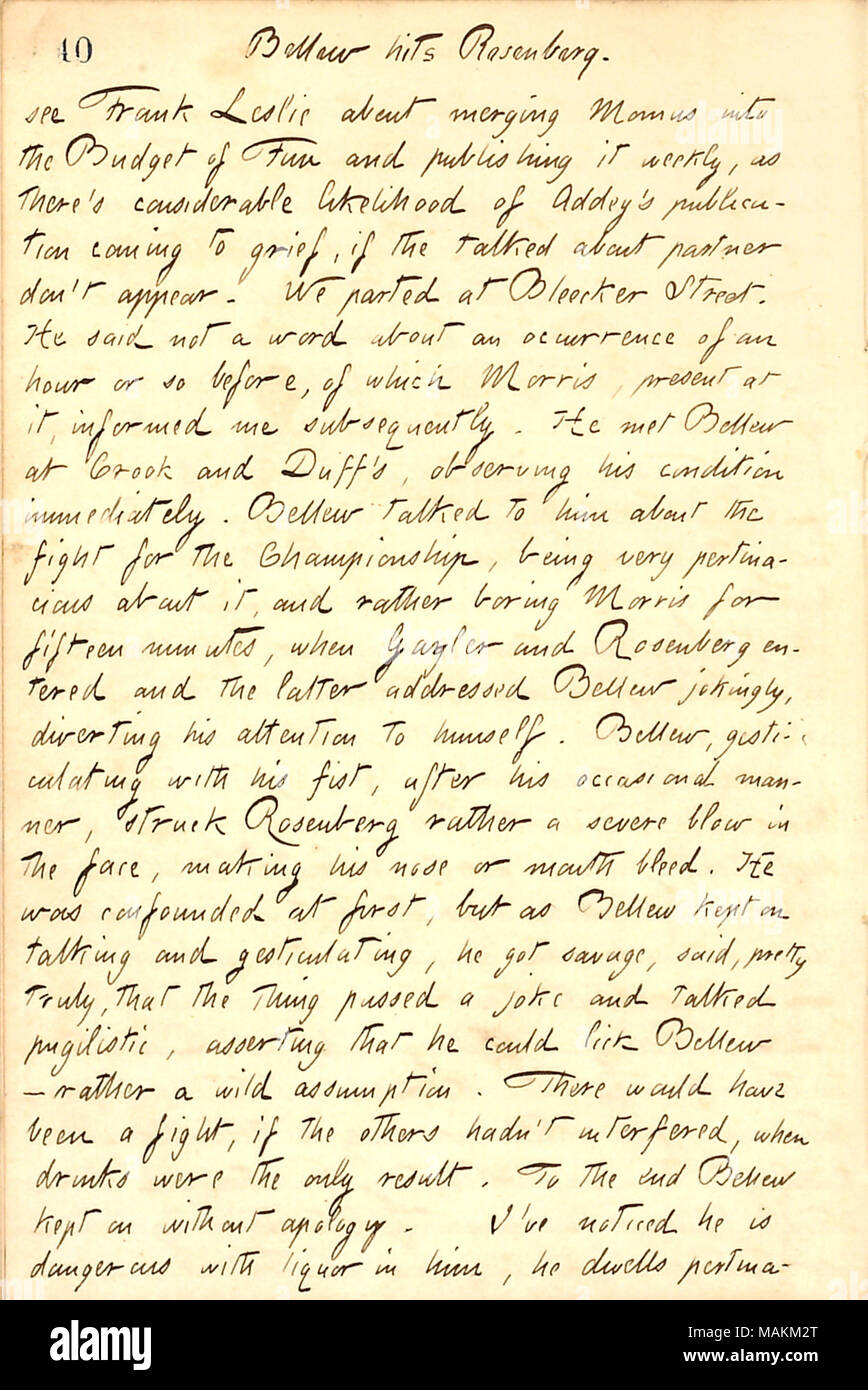 40
Bellew hits Rosenberg.
see Frank Leslie about merging Momus into
the Budget of Fun and publishing it weekly, as
there's considerable likelihood of Addey's publica-
tion coming to grief, if the talked about partner
don't appear. We parted at Bleecker Street.
He said not a word about an occurrence of an
hour or so before, of which Morris, present at
it, informed me subsequently. He met Bellew
at Crook and Duff's, observing his condition
immediately. Bellew talked to him about the
fight for the Championship, being very pertina-
cious about it, and rather boring Morris for
fifteen minutes, when Gayler and Rosenberg en-
tered and the latter addressed Bellew jokingly,
diverting his attention to himself. Bellew, gesti-
culating with his fist, after his occasional man-
ner, struck Rosenberg rather a severe blow in
the face, making his nose or mouth bleed. He
was confounded at first, but as Bellew kept on
talking and gesticulating, he got savage, said, pretty
truly, that the thing passed a joke and talked
pugilistic, asserting that he could lick Bellew
—rather a wild assumption. There would have
been a fight, if the others hadn't interfered, when
drinks were the only result. To the end Bellew
kept on without apology. I've noticed he is
dangerous with liquor in him, he dwells pertina-
alamy
Image ID: MAKM2T
www.alamy.com